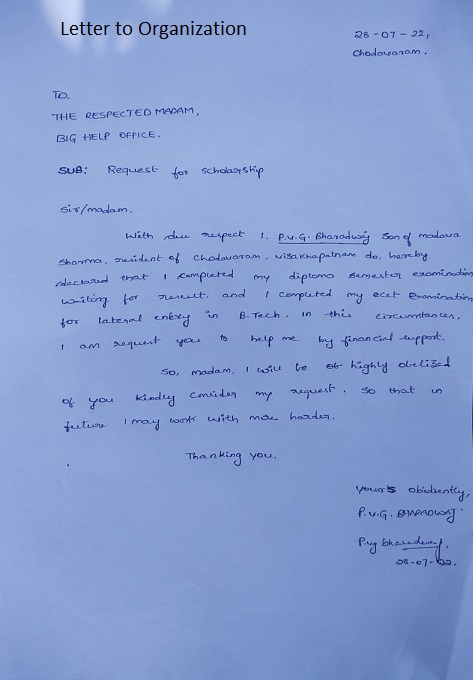 Letter to Organization
28-07-22,
Chodavaram.
TO,
THE RESPECTED MADAM,
BIG HELP OFFICE.
SUB: Request for scholarship
Sir/madam,
With due respect I, P.V.G. Bharadwaj Son of madava
Sharma, resident of Chodavaram, visakhapatnam do, hereby
declared that I completed my diploma semester examination
waiting for result. and I completed my ecet Examination
for lateral entry in B.Tech. in this circumstances,
I am request you to help me by financial support.
So, madam, I will be highly
of you kindly consider my request. So that in
future I may work with more harder.
Thanking you.
yours obidiently,
P.V.G. BHARADWAJ
P.vg Bharadwaj.
28-07-22.